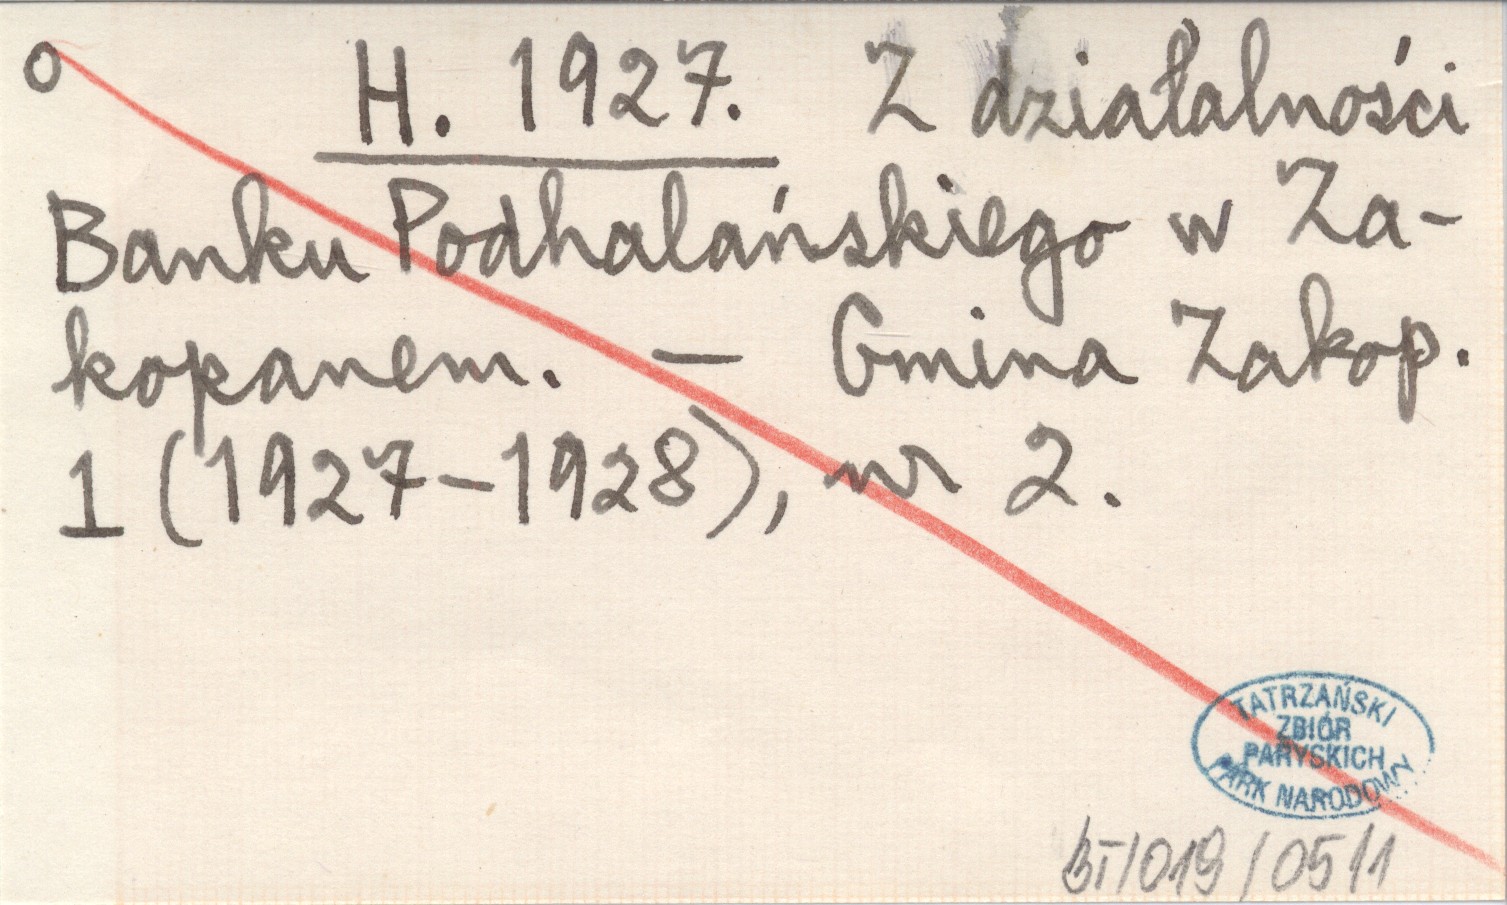 o H. 1927. Z działalności
Banku Podhalańskiego w Za-
kopanem. — Gmina Zakop.
1 (1927-1928), nr 2.
TATRZAŃSKI
ZBIÓR
PARYSKICH
PARK NARODOWY
BT/019/0511